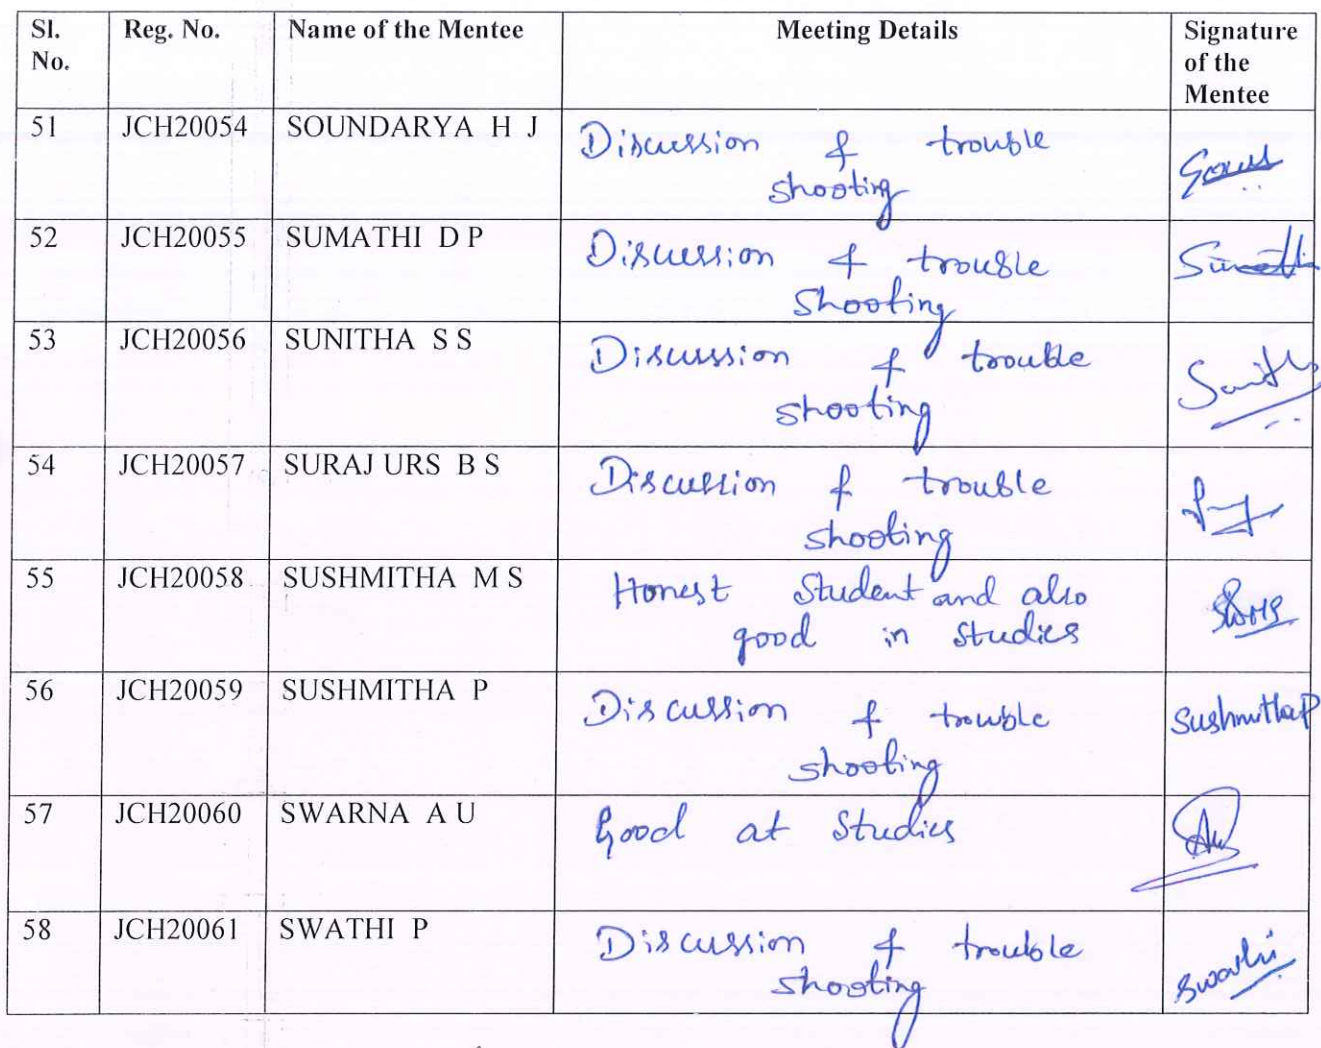 Sl. No. Reg. No. Name of the Mentee Meeting Details Signature of the Mentee
51 JCH20054 SOUNDARYA H J Discussion & trouble
shooting
52 JCH20055 SUMATHI D P Discussion & trouble
shooting
53 JCH20056 SUNITHA S S Discussion & trouble
shooting
54 JCH20057 SURAJ URS B S Discussion & trouble
shooting
55 JCH20058 SUSHMITHA M S Honest Student and also
good in studies
56 JCH20059 SUSHMITHA P Discussion & trouble Sushmitha P
shooting
57 JCH20060 SWARNA A U Good at Studies
58 JCH20061 SWATHI P Discussion & trouble Swathi
shooting